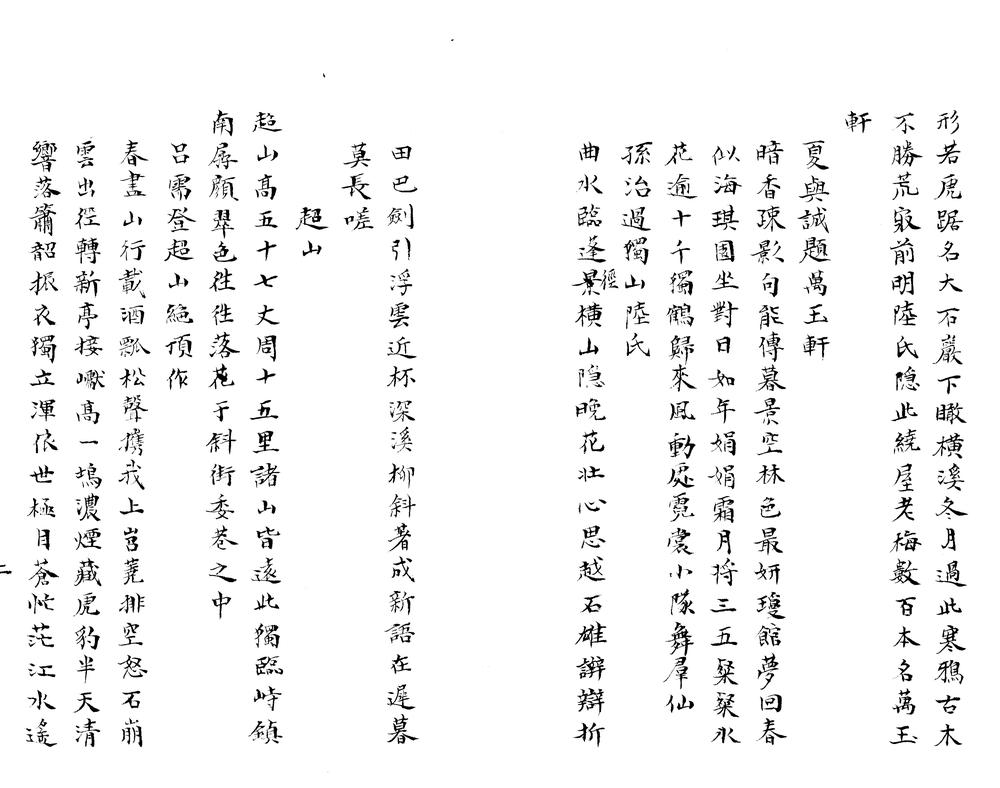 形若虎踞名大石巖下瞰橫溪冬月過此寒鴉古木
不勝荒寂前明陸氏隐此繞屋老梅數百本名萬玉
軒
夏與誠題萬玉軒
暗香疎影句能傳暮景空林色最妍瓊館夢回春
似海琪園坐對日如年娟娟霜月將三五粲粲氷
花逾十千獨鶴歸來風動處霓裳小隊舞羣仙
孫治過獨山陸氏
曲水臨蓬徑景橫山隐晚花壯心思越石雄辯辯折
田巴劍引浮雲近杯深溪柳斜著成新語在遲暮
莫長嗟
超山
超山高五十七丈周十五里諸山皆遠此獨臨峙鎮
南孱顔翠色徃徃落花于斜街委巷之中
呂需登超山絶頂作
春盡山行載酒瓢松聲携我上岧蕘排空怒石崩
雲出徑轉新亭接巘高一塢濃煙藏虎豹半天清
響落簫韶振衣獨立渾依世極目蒼忙茫江水遙
二